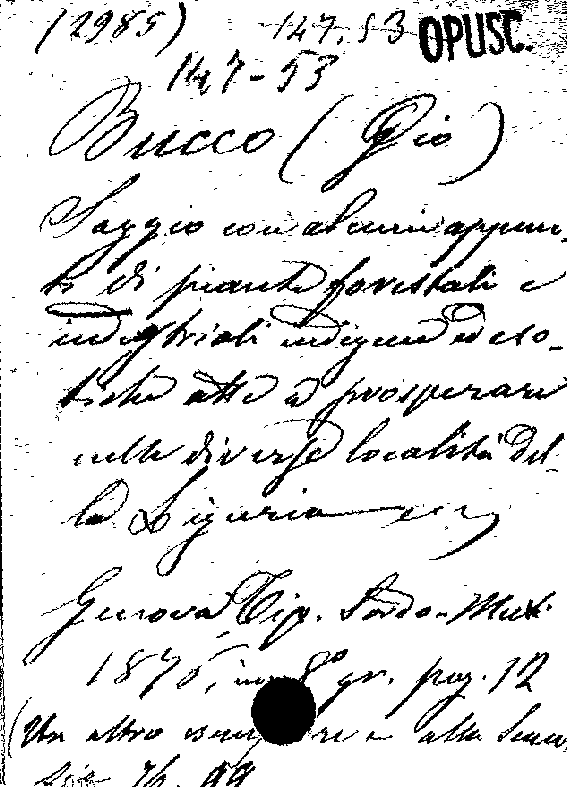 (2985) 147.53 OPUSC.
147-53
Bucco (Gio)
Saggio con alcuni appun-
ti di piante forestali e
industriali indigene ed eso-
tiche atte a prosperare
nelle diverse località del-
la Liguria
Genova Tip. Sordo-Muti
1875, in 8° gr. pag. 12
(Un altro è alla
76.